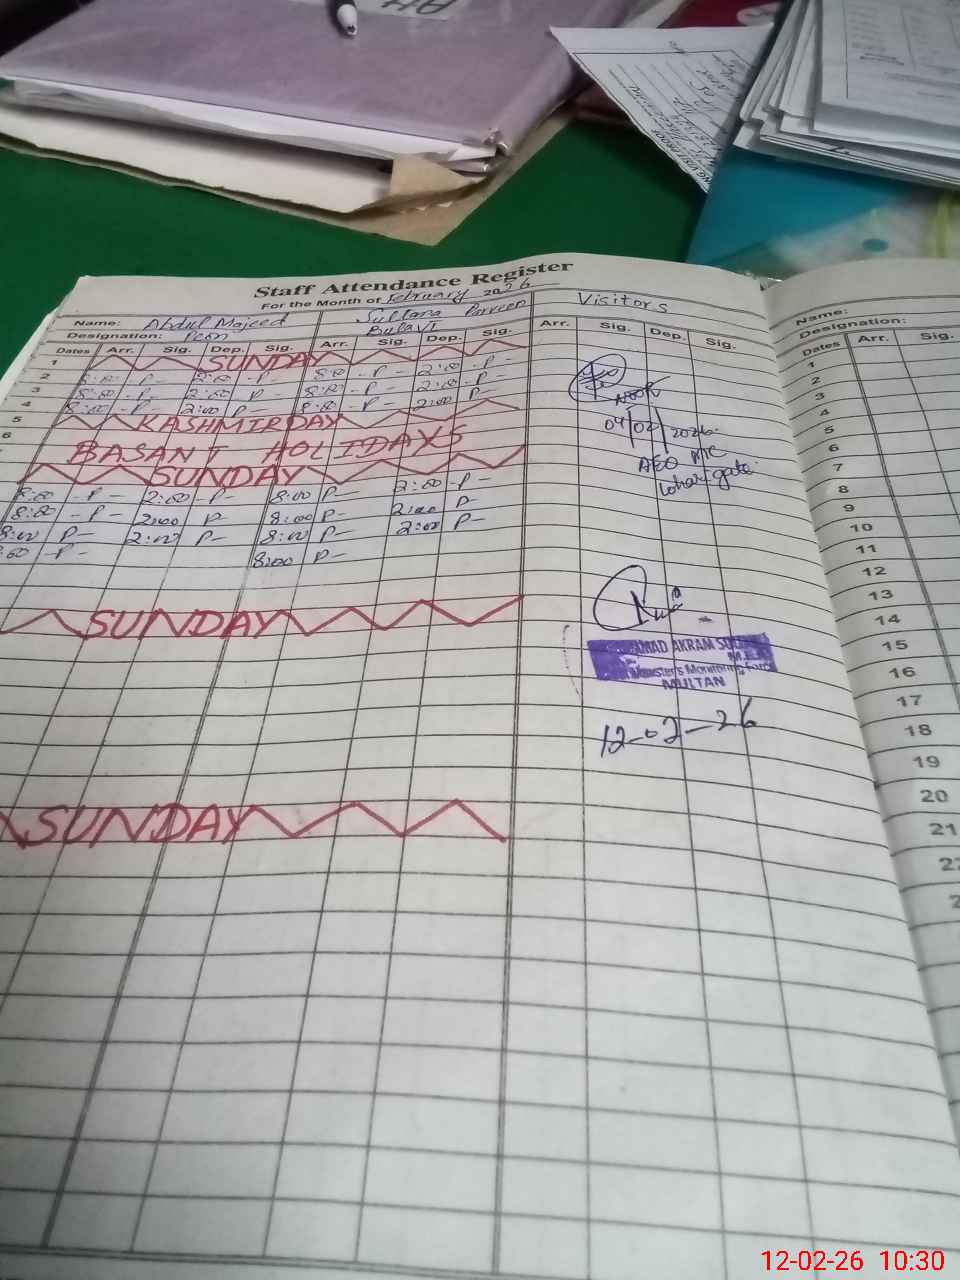 Staff Attendance Register
For the Month of February 2026
Name: Abdul Majeed Sultana Parveen Visitors
Designation: Peon Bulavi
Dates Arr. Sig. Dep. Sig. Arr. Sig. Dep. Sig. Arr. Sig. Dep. Sig.
1 SUNDAY
2 8:00 -P- 2:00 -P- 8:00 -P- 2:00 -P-
3 8:00 -P- 2:00 -P- 8:00 -P- 2:00 -P-
4 8:00 -P- 2:00 P- 8:00 -P- 2:00 P-
5 KASHMIR DAY
6 BASANT HOLIDAYS
SUNDAY
8:00 -P- 2:00 -P- 8:00 P- 2:00 -P-
8:00 -P- 2:00 P 8:00 P- 2:00 P
8:00 P- 2:00 P- 8:00 P- 2:00 P-
:00 -P- 8:00 P-
SUNDAY
SUNDAY
04/02/2026
AEO MC
Lohari gate
MAD AKRAM
M.E.A
Monitoring Force
MULTAN
12-02-26
Name:
Designation:
Dates Arr. Sig.
1
2
3
4
5
6
7
8
9
10
11
12
13
14
15
16
17
18
19
20
21
12-02-26 10:30